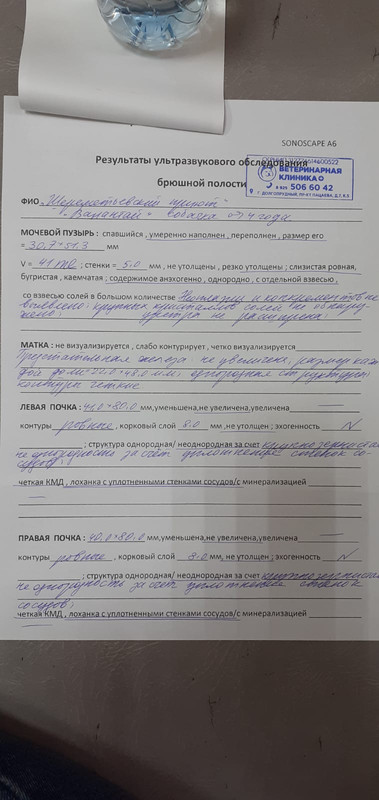 SONOSCAPE A6
Результаты ультразвукового обследования
брюшной полости
ВЕТЕРИНАРНАЯ
КЛИНИКА О
8 925 506 60 42
Г. ДОЛГОПРУДНЫЙ, ПР-КТ ПАЦАЕВА, Д.7, К.3
ФИО „Шереметьевский приют"
собака ♂ 4 года
МОЧЕВОЙ ПУЗЫРЬ : спавшийся , умеренно наполнен , переполнен , размер его
= 30,7*51.3 мм
V = 41 ml ; стенки = 5.0 мм , не утолщены , резко утолщены ; слизистая ровная,
бугристая , каемчатая ; содержимое анэхогенно , однородно , с отдельной взвесью ,
со взвесью солей в большом количестве и конкрементов не
выявлено; крупных кристаллов солей не обнару-
жено; уретра не расширена;
МАТКА : не визуализируется , слабо контурирует , четко визуализируется
Предстательная железа не увеличена, размер каж-
дой доли = 22.0*48.0 мм; однородная структура;
контуры четкие
ЛЕВАЯ ПОЧКА : 41.0*80.0 мм,уменьшена,не увеличена,увеличена
контуры ровные , корковый слой 8.0 мм, не утолщен ; эхогенность N
; структура однородная/ неоднородная за счет
не однородность за счет уплотнения стенок со-
судов;
четкая КМД , лоханка с уплотненными стенками сосудов/с минерализацией
ПРАВАЯ ПОЧКА : 40.0*80.0 мм,уменьшена,не увеличена,увеличена
контуры ровные , корковый слой 8.0 мм, не утолщен ; эхогенность N
; структура однородная/ неоднородная за счет
не однородность за счет уплотнения стенок
сосудов;
четкая КМД , лоханка с уплотненными стенками сосудов/с минерализацией